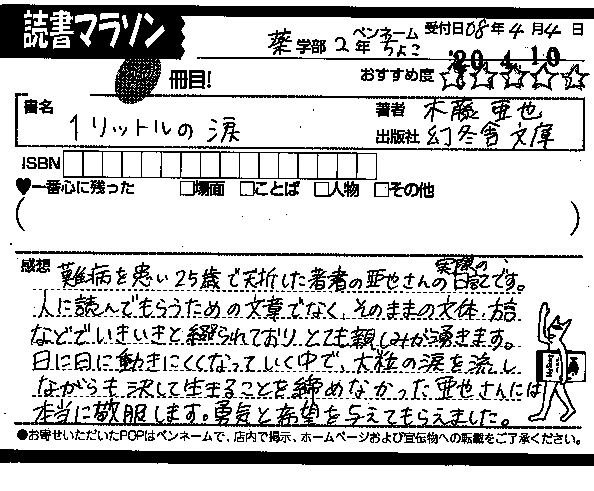 読書マラソン
ペンネーム 受付日08年4月4日
薬学部2年 ちょこ
'20.4.10
冊目!
おすすめ度☆☆☆☆☆
書名
1リットルの涙
著者 木藤亜也
出版社 幻冬舎文庫
ISBN
♥一番心に残った □場面 □ことば □人物 □その他
( )
感想 難病を患い25歳で夭折した著者の亜也さんの実際の日記です。
人に読んでもらうための文章でなく、そのままの文体、方言
などでいきいきと綴られており、とても親しみが湧きます。
日に日に動きにくくなっていく中で、大粒の涙を流し
ながらも決して生きることを締めなかった亜也さんには
本当に敬服します。勇気と希望を与えてもらえました。
●お寄せいただいたPOPはペンネームで、店内で掲示、ホームページおよび宣伝物への転載をご了承ください。